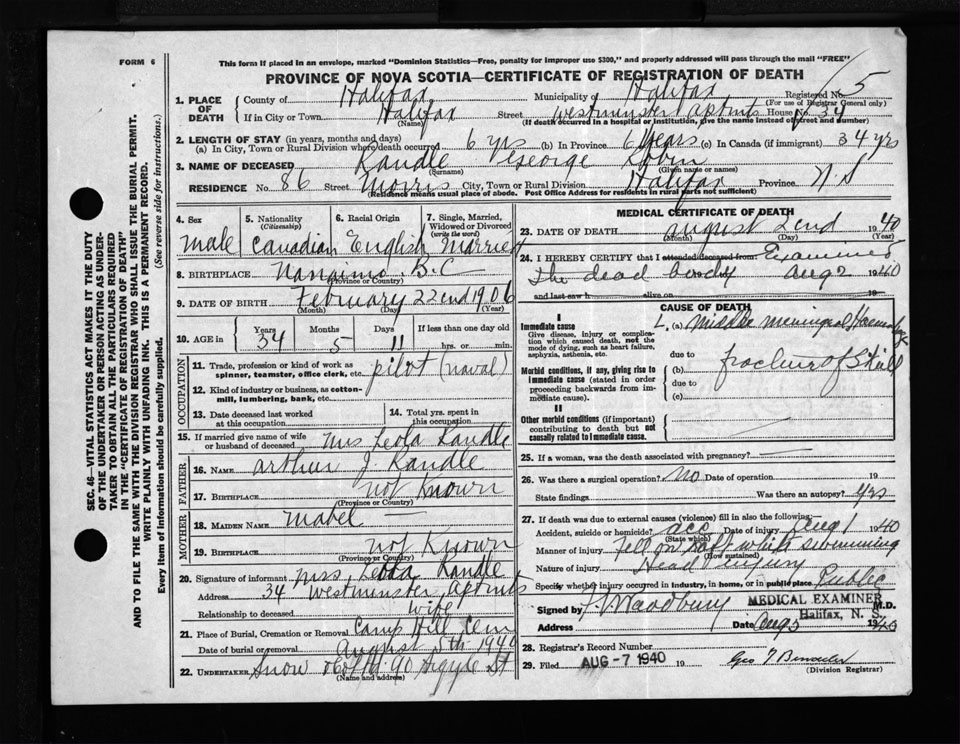 FORM 6
This form if placed in an envelope, marked "Dominion Statistics—Free, penalty for improper use $300," and properly addressed will pass through the mail "FREE"
PROVINCE OF NOVA SCOTIA—CERTIFICATE OF REGISTRATION OF DEATH
1. PLACE OF DEATH
County of Halifax Municipality of Halifax Registered No. 5
(For use of Registrar General only)
If in City or Town Halifax Street Westminster Aptmts House No. 34
(Name) (If death occurred in a hospital or institution, give the name instead of street and number)
2. LENGTH OF STAY (in years, months and days)
(a) In City, Town or Rural Division where death occurred 6 yrs (b) In Province 6 years (c) In Canada (if immigrant) 34 yrs
3. NAME OF DECEASED Randle George Robin
(Surname) (Given name or names)
RESIDENCE No. 86 Street Morris City, Town or Rural Division Halifax Province N.S
(Residence means usual place of abode. Post Office Address for residents in rural parts not sufficient)
4. Sex
male
5. Nationality
(Citizenship)
Canadian
6. Racial Origin
English
7. Single, Married, Widowed or Divorced
(write the word)
Married
8. BIRTHPLACE Nanaimo B.C
(Province or Country)
9. DATE OF BIRTH February 22nd 1906
(Month) (Day) (Year)
10. AGE in
Years Months Days If less than one day old
34 5 11 hrs. or min.
OCCUPATION
11. Trade, profession or kind of work as spinner, teamster, office clerk, etc. pilot (naval)
12. Kind of industry or business, as cotton-mill, lumbering, bank, etc.
13. Date deceased last worked at this occupation
14. Total yrs. spent in this occupation
15. If married give name of wife or husband of deceased Mrs Leola Randle
FATHER
16. NAME Arthur J. Randle
17. BIRTHPLACE not Known
(Province or Country)
MOTHER
18. MAIDEN NAME Mabel —
19. BIRTHPLACE not Known
(Province or Country)
20. Signature of informant Mrs. Leola Randle
Address 34 Westminster Aptmts
Relationship to deceased wife
21. Place of Burial, Cremation or Removal Camp Hill Cem
Date of burial or removal August 5th 1940
22. UNDERTAKER Snow & Co Ltd 90 Argyle St
(Name and address)
MEDICAL CERTIFICATE OF DEATH
23. DATE OF DEATH August 2nd 1940
(Month) (Day) (Year)
24. I HEREBY CERTIFY that I attended deceased from Examined
the dead body Aug 2 1940
and last saw h alive on 19
CAUSE OF DEATH
I
Immediate cause
Give disease, injury or complication which caused death, not the mode of dying, such as heart failure, asphyxia, asthenia, etc.
(a) Middle meningeal Haemorrhage
due to
Morbid conditions, if any, giving rise to immediate cause (stated in order proceeding backwards from immediate cause).
(b) fracture of Skull
due to
(c)
II
Other morbid conditions (if important) contributing to death but not causally related to immediate cause.
25. If a woman, was the death associated with pregnancy? —
26. Was there a surgical operation? No Date of operation 19
State findings Was there an autopsy? yes
27. If death was due to external causes (violence) fill in also the following:
Accident, suicide or homicide? acc Date of injury Aug 1 1940
(State which)
Manner of injury fell on raft while swimming
(How sustained)
Nature of injury Head Injury
Specify whether injury occurred in industry, in home, or in public place Public
Signed by Woodbury MEDICAL EXAMINER M.D.
Halifax, N. S.
Address Date Aug 1940
28. Registrar's Record Number
29. Filed AUG -7 1940 19
(Division Registrar)
SEC. 46—VITAL STATISTICS ACT MAKES IT THE DUTY OF THE UNDERTAKER OR PERSON ACTING AS UNDERTAKER TO OBTAIN ALL THE PARTICULARS REQUIRED IN THE "CERTIFICATE OF REGISTRATION OF DEATH"
AND TO FILE THE SAME WITH THE DIVISION REGISTRAR WHO SHALL ISSUE THE BURIAL PERMIT.
WRITE PLAINLY WITH UNFADING INK. THIS IS A PERMANENT RECORD.
Every item of Information should be carefully supplied. (See reverse side for instructions.)